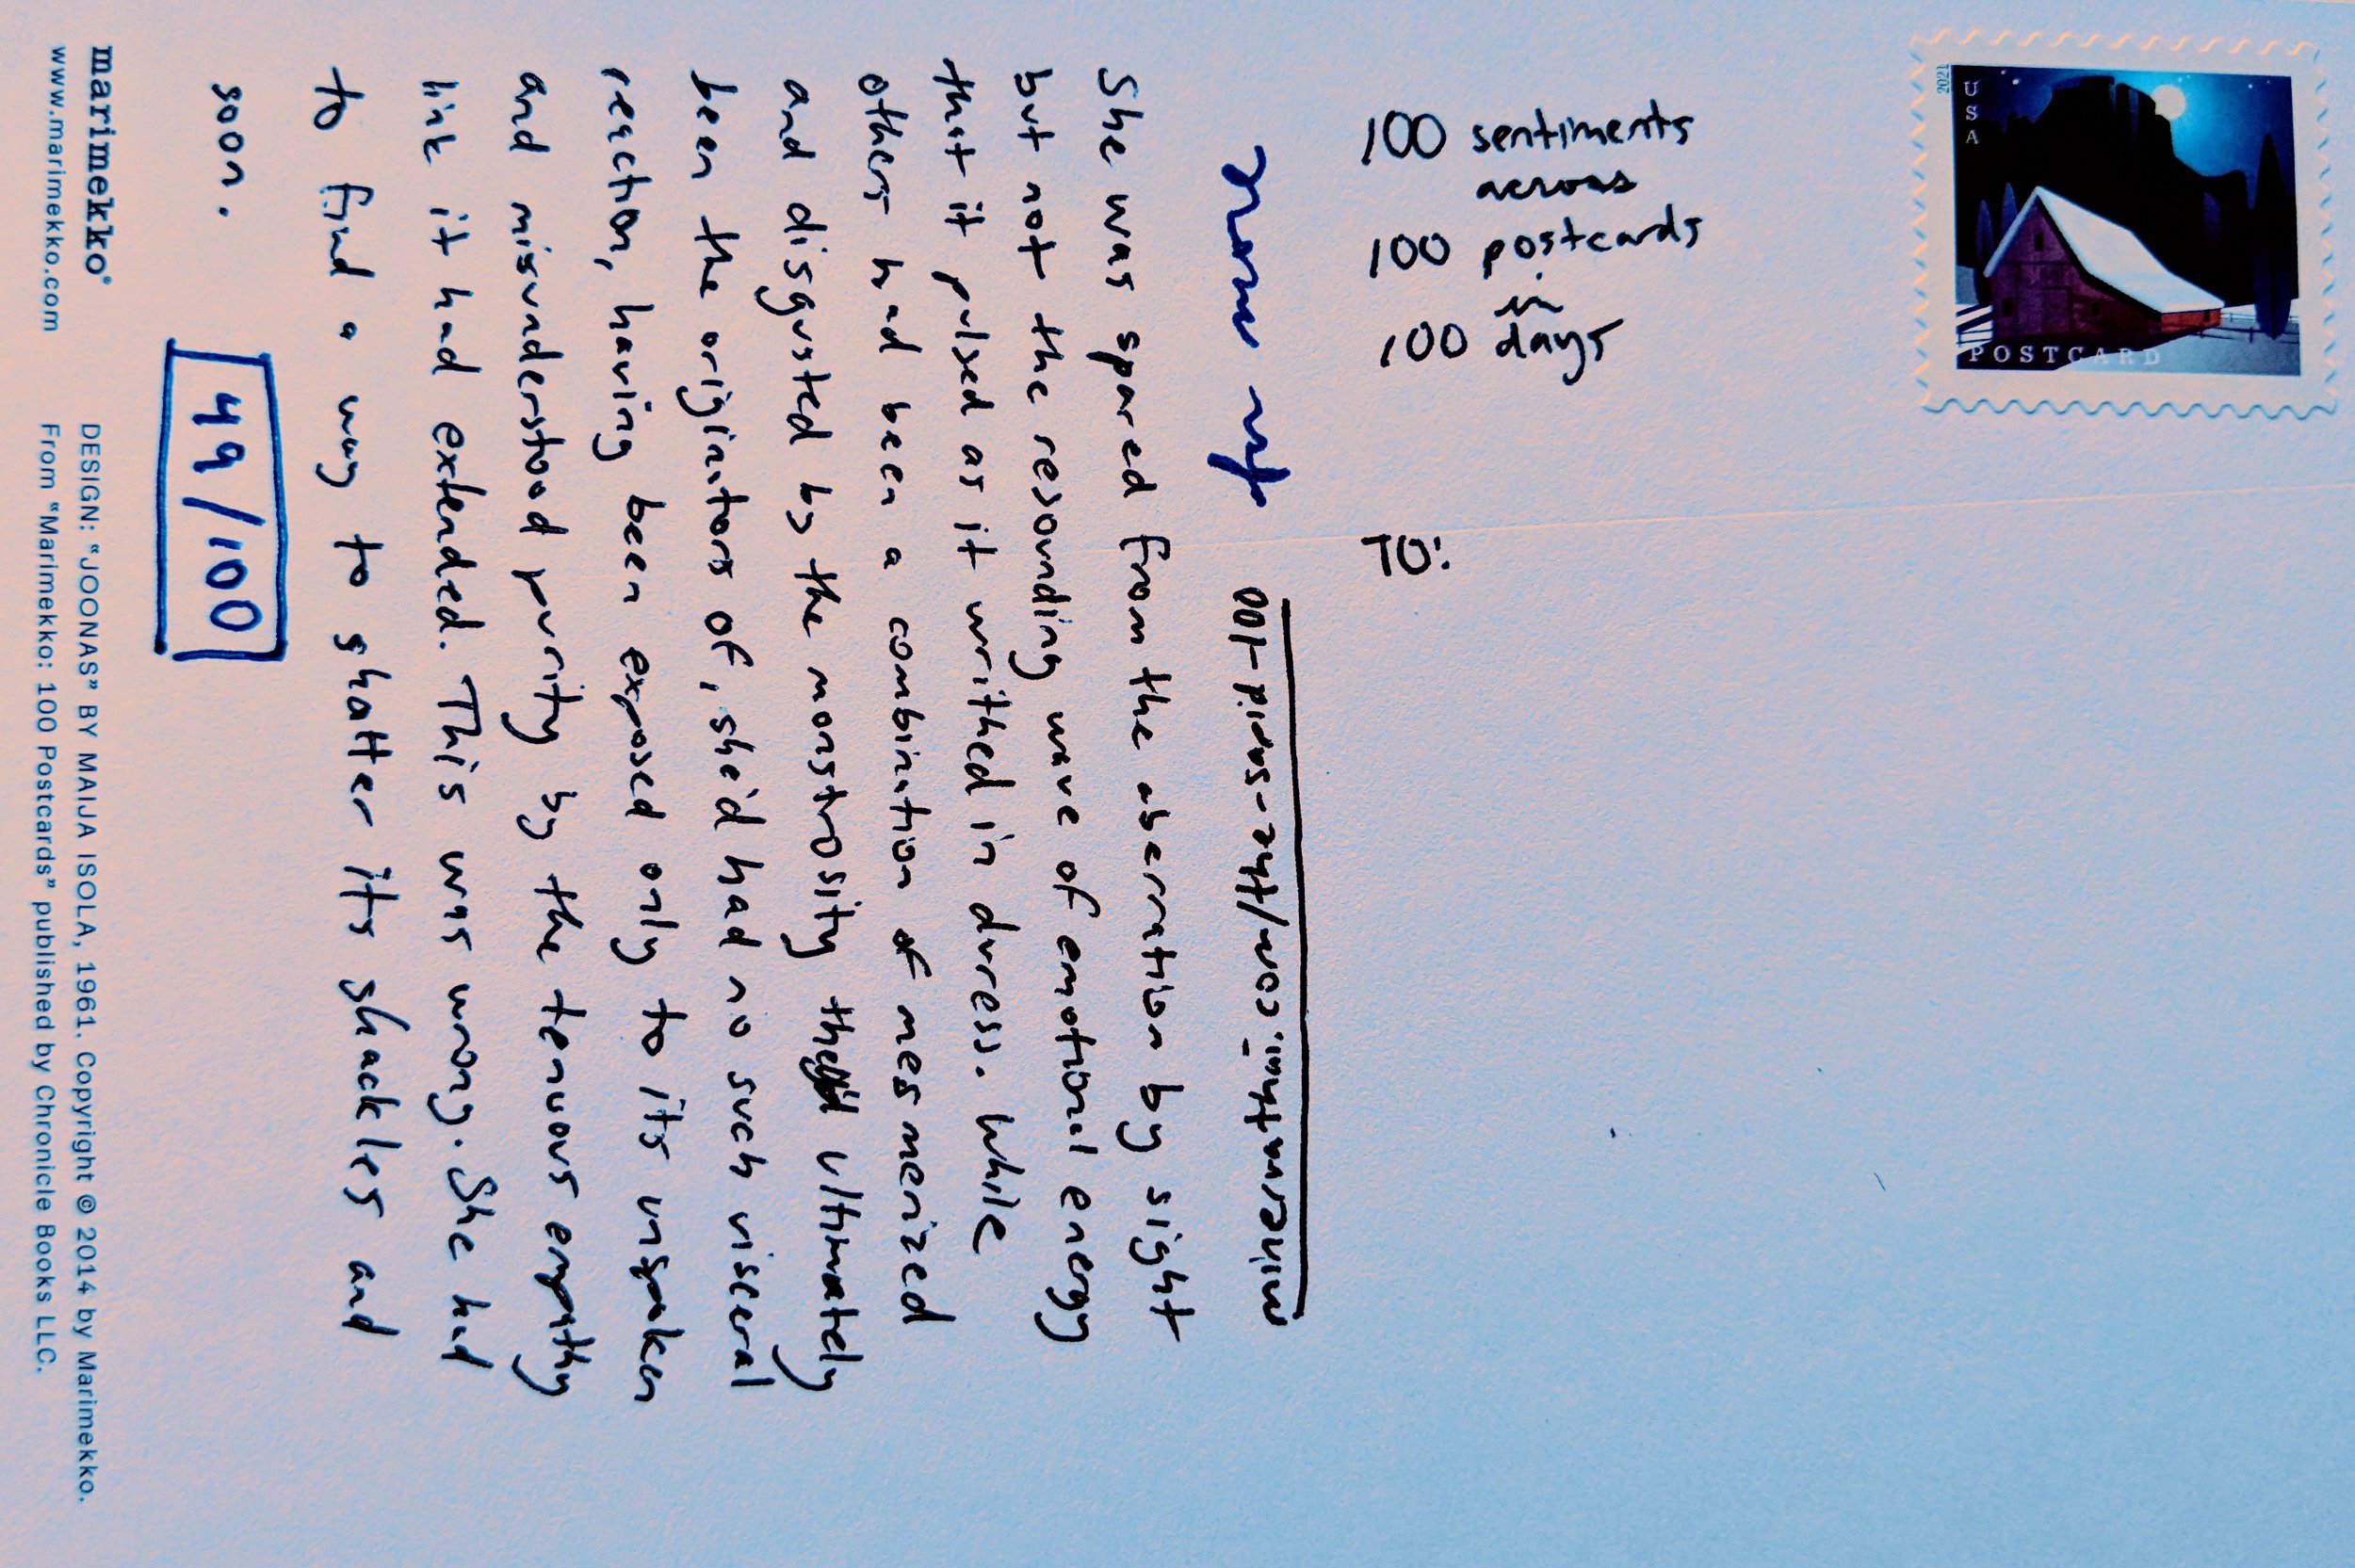 2021
USA
POSTCARD
100 sentiments
across
100 postcards
in
100 days
TO:
She was spared from the aberration by sight
but not the resounding wave of emotional energy
that it pulsed as it writhed in duress. While
others had been a combination of mesmerized
and disgusted by the monstrosity they'd ultimately
been the originators of, she'd had no such visceral
reaction, having been exposed only to its unspoken
and misunderstood purity by the tenuous empathy
link it had extended. This was wrong. She had
to find a way to shatter its shackles and
soon.
49/100
marimekko®
www.marimekko.com
DESIGN: “JOONAS” BY MAIJA ISOLA, 1961. Copyright © 2014 by Marimekko.
From “Marimekko: 100 Postcards” published by Chronicle Books LLC.